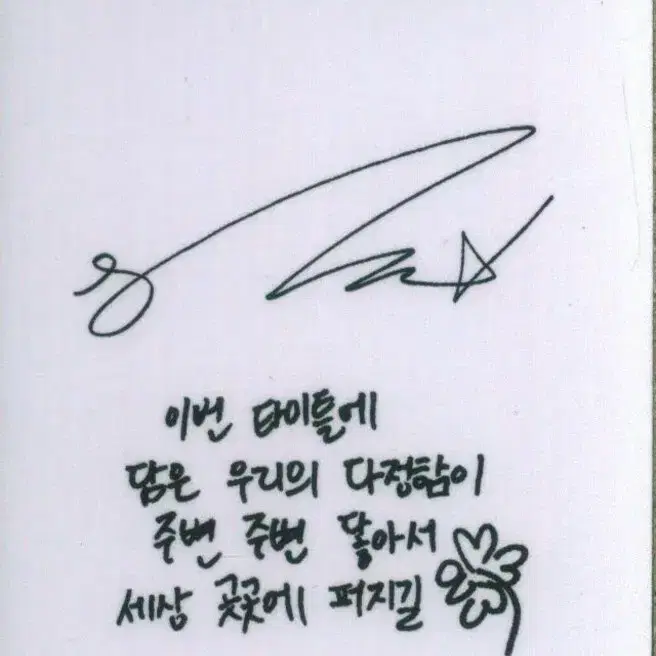 이번 타이틀에
담은 우리의 다정함이
주변 주변 닿아서
세상 곳곳에 퍼지길